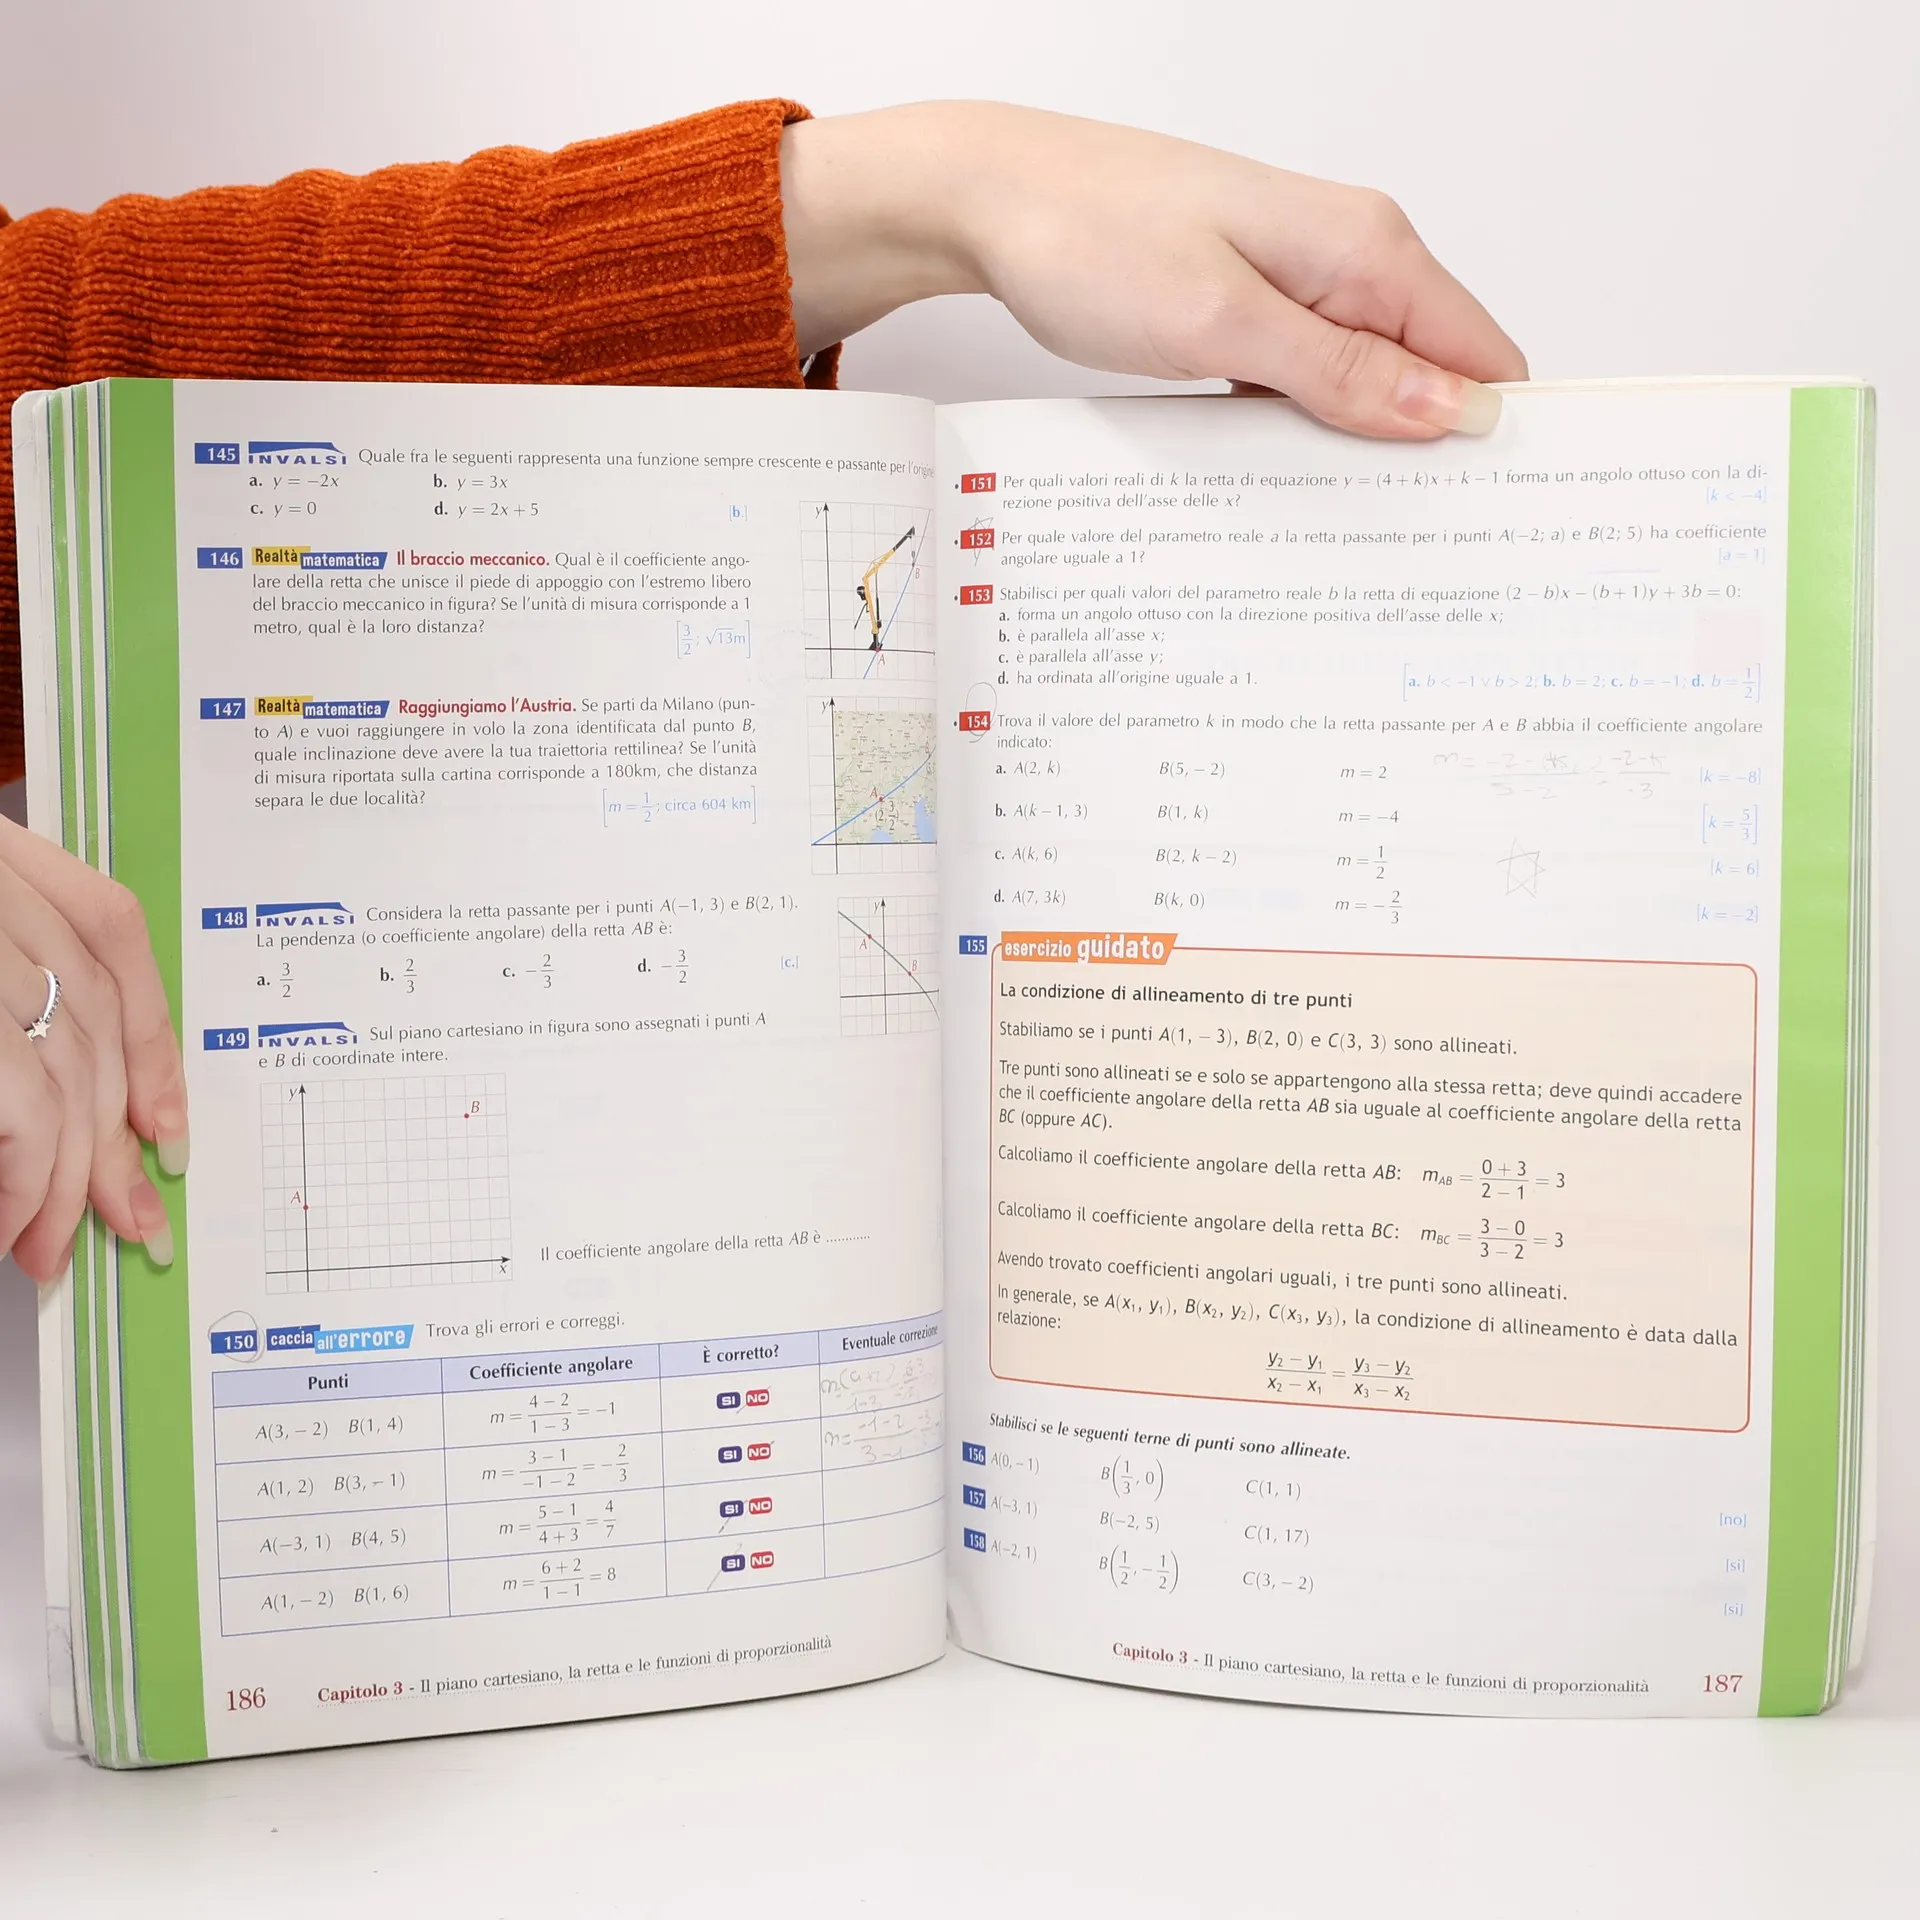 145 INVALSI Quale fra le seguenti rappresenta una funzione sempre crescente e passante per l'origine
a. y = −2x b. y = 3x
c. y = 0 d. y = 2x + 5 [b.]
146 Realtà matematica Il braccio meccanico. Qual è il coefficiente ango-
lare della retta che unisce il piede di appoggio con l'estremo libero
del braccio meccanico in figura? Se l'unità di misura corrisponde a 1
metro, qual è la loro distanza? [3/2; √13m]
y
B
A
147 Realtà matematica Raggiungiamo l'Austria. Se parti da Milano (pun-
to A) e vuoi raggiungere in volo la zona identificata dal punto B,
quale inclinazione deve avere la tua traiettoria rettilinea? Se l'unità
di misura riportata sulla cartina corrisponde a 180km, che distanza
separa le due località? [m = 1/2; circa 604 km]
y
A
(2, 3/2)
148 INVALSI Considera la retta passante per i punti A(−1, 3) e B(2, 1).
La pendenza (o coefficiente angolare) della retta AB è:
a. 3/2 b. 2/3 c. −2/3 d. −3/2 [c.]
y
A
B
149 INVALSI Sul piano cartesiano in figura sono assegnati i punti A
e B di coordinate intere.
y
B
A
x
Il coefficiente angolare della retta AB è ............
150 caccia all'errore Trova gli errori e correggi.
Punti Coefficiente angolare È corretto? Eventuale correzione
A(3, − 2) B(1, 4) m = (4 − 2)/(1 − 3) = −1 SI NO
A(1, 2) B(3, − 1) m = (3 − 1)/(−1 − 2) = −2/3 SI NO m = (−1−2)/(3−1)
A(−3, 1) B(4, 5) m = (5 − 1)/(4 + 3) = 4/7 SI NO
A(1, − 2) B(1, 6) m = (6 + 2)/(1 − 1) = 8 SI NO
186 Capitolo 3 - Il piano cartesiano, la retta e le funzioni di proporzionalità
151 Per quali valori reali di k la retta di equazione y = (4 + k)x + k − 1 forma un angolo ottuso con la di-
rezione positiva dell'asse delle x? [k < −4]
152 Per quale valore del parametro reale a la retta passante per i punti A(−2; a) e B(2; 5) ha coefficiente
angolare uguale a 1? [a = 1]
153 Stabilisci per quali valori del parametro reale b la retta di equazione (2 − b)x − (b + 1)y + 3b = 0:
a. forma un angolo ottuso con la direzione positiva dell'asse delle x;
b. è parallela all'asse x;
c. è parallela all'asse y;
d. ha ordinata all'origine uguale a 1. [a. b < −1 ∨ b > 2; b. b = 2; c. b = −1; d. b = 1/2]
154 Trova il valore del parametro k in modo che la retta passante per A e B abbia il coefficiente angolare
indicato:
a. A(2, k) B(5, − 2) m = 2 [k = −8]
b. A(k − 1, 3) B(1, k) m = −4 [k = 5/3]
c. A(k, 6) B(2, k − 2) m = 1/2 [k = 6]
d. A(7, 3k) B(k, 0) m = −2/3 [k = −2]
155 esercizio guidato
La condizione di allineamento di tre punti
Stabiliamo se i punti A(1, − 3), B(2, 0) e C(3, 3) sono allineati.
Tre punti sono allineati se e solo se appartengono alla stessa retta; deve quindi accadere
che il coefficiente angolare della retta AB sia uguale al coefficiente angolare della retta
BC (oppure AC).
Calcoliamo il coefficiente angolare della retta AB: m_AB = (0 + 3)/(2 − 1) = 3
Calcoliamo il coefficiente angolare della retta BC: m_BC = (3 − 0)/(3 − 2) = 3
Avendo trovato coefficienti angolari uguali, i tre punti sono allineati.
In generale, se A(x₁, y₁), B(x₂, y₂), C(x₃, y₃), la condizione di allineamento è data dalla
relazione:
(y₂ − y₁)/(x₂ − x₁) = (y₃ − y₂)/(x₃ − x₂)
Stabilisci se le seguenti terne di punti sono allineate.
156 A(0, − 1) B(1/3, 0) C(1, 1) [no]
157 A(−3, 1) B(−2, 5) C(1, 17) [si]
158 A(−2, 1) B(1/2, −1/2) C(3, − 2) [si]
Capitolo 3 - Il piano cartesiano, la retta e le funzioni di proporzionalità 187